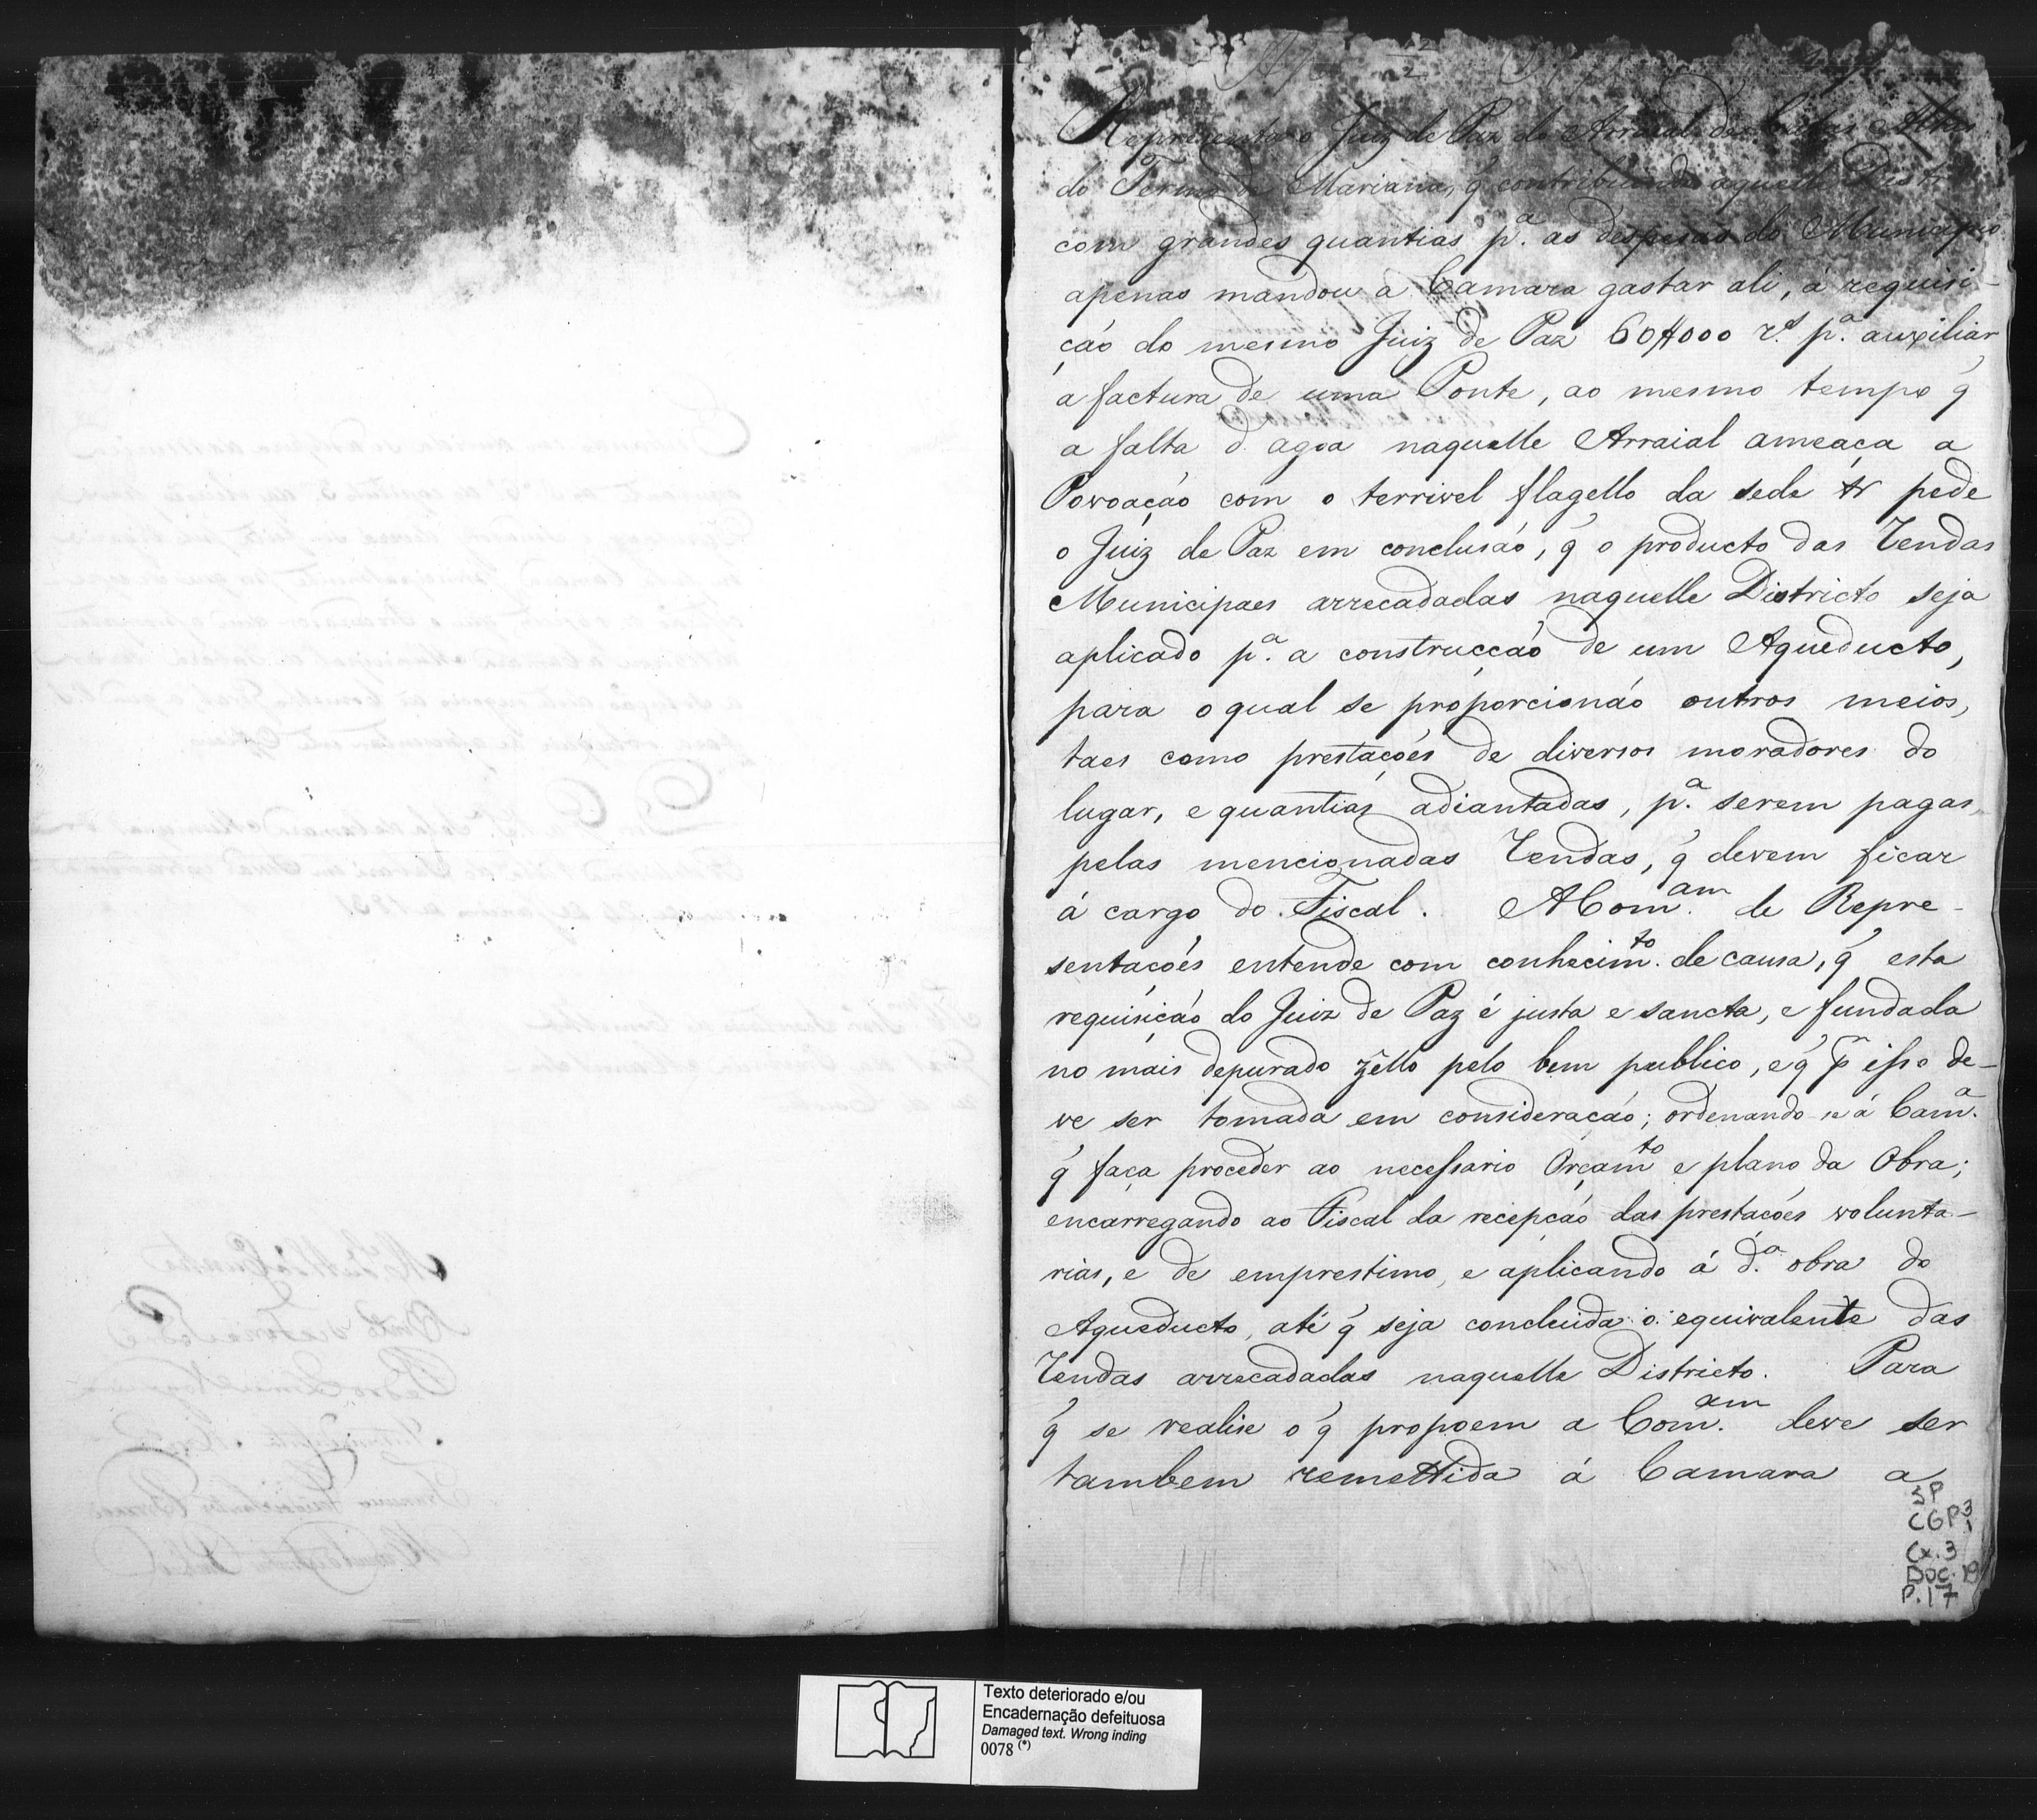 Representa o Juiz de Paz do Arraial de Catas Altas
do Termo de Mariana, q̃ contribuindo aquelle Distr
com grandes quantias p.ª as despesas do Municipio
apenas mandou a Camara gastar ali, á requisi-
ção do mesmo Juiz de Paz 60$000 r.s p.ª auxiliar
a factura de uma Ponte, ao mesmo tempo q̃
a falta d agoa naquelle Arraial ameaça a
Povoação com o terrivel flagello da sede pede
o Juiz de Paz em conclusão, q̃ o producto das Rendas
Municipaes arrecadadas naquelle Districto seja
aplicado p.ª a construcção de um Aqueducto,
para o qual se proporcionão outros meios,
taes como prestações de diversos moradores do
lugar, e quantias adiantadas, p.ª serem pagas
pelas mencionadas Rendas, q̃ devem ficar
á cargo do Fiscal. A Com.am de Repre-
sentações entende com conhecim.to de causa, q̃ esta
requisição do Juiz de Paz é justa e sancta, e fundada
no mais depurado zêllo pelo bem publico, e q̃ p̃ isso de-
ve ser tomada em consideração; ordenando se á Cam.ª
q̃ faça proceder ao necessario Orçam.to e plano da Obra;
encarregando ao Fiscal da recepção das prestações volunta-
rias, e de emprestimo, e aplicando á d.ª obra do
Aqueducto, até q̃ seja concluida o equivalente das
Rendas arrecadadas naquelle Districto. Para
q̃ se realise o q̃ propoem a Com.am deve ser
tambem remettida á Camara a
SP
CGP3
1
Cx. 3
Doc. 19
P. 17
Texto deteriorado e/ou
Encadernação defeituosa
Damaged text. Wrong inding
0078 (*)